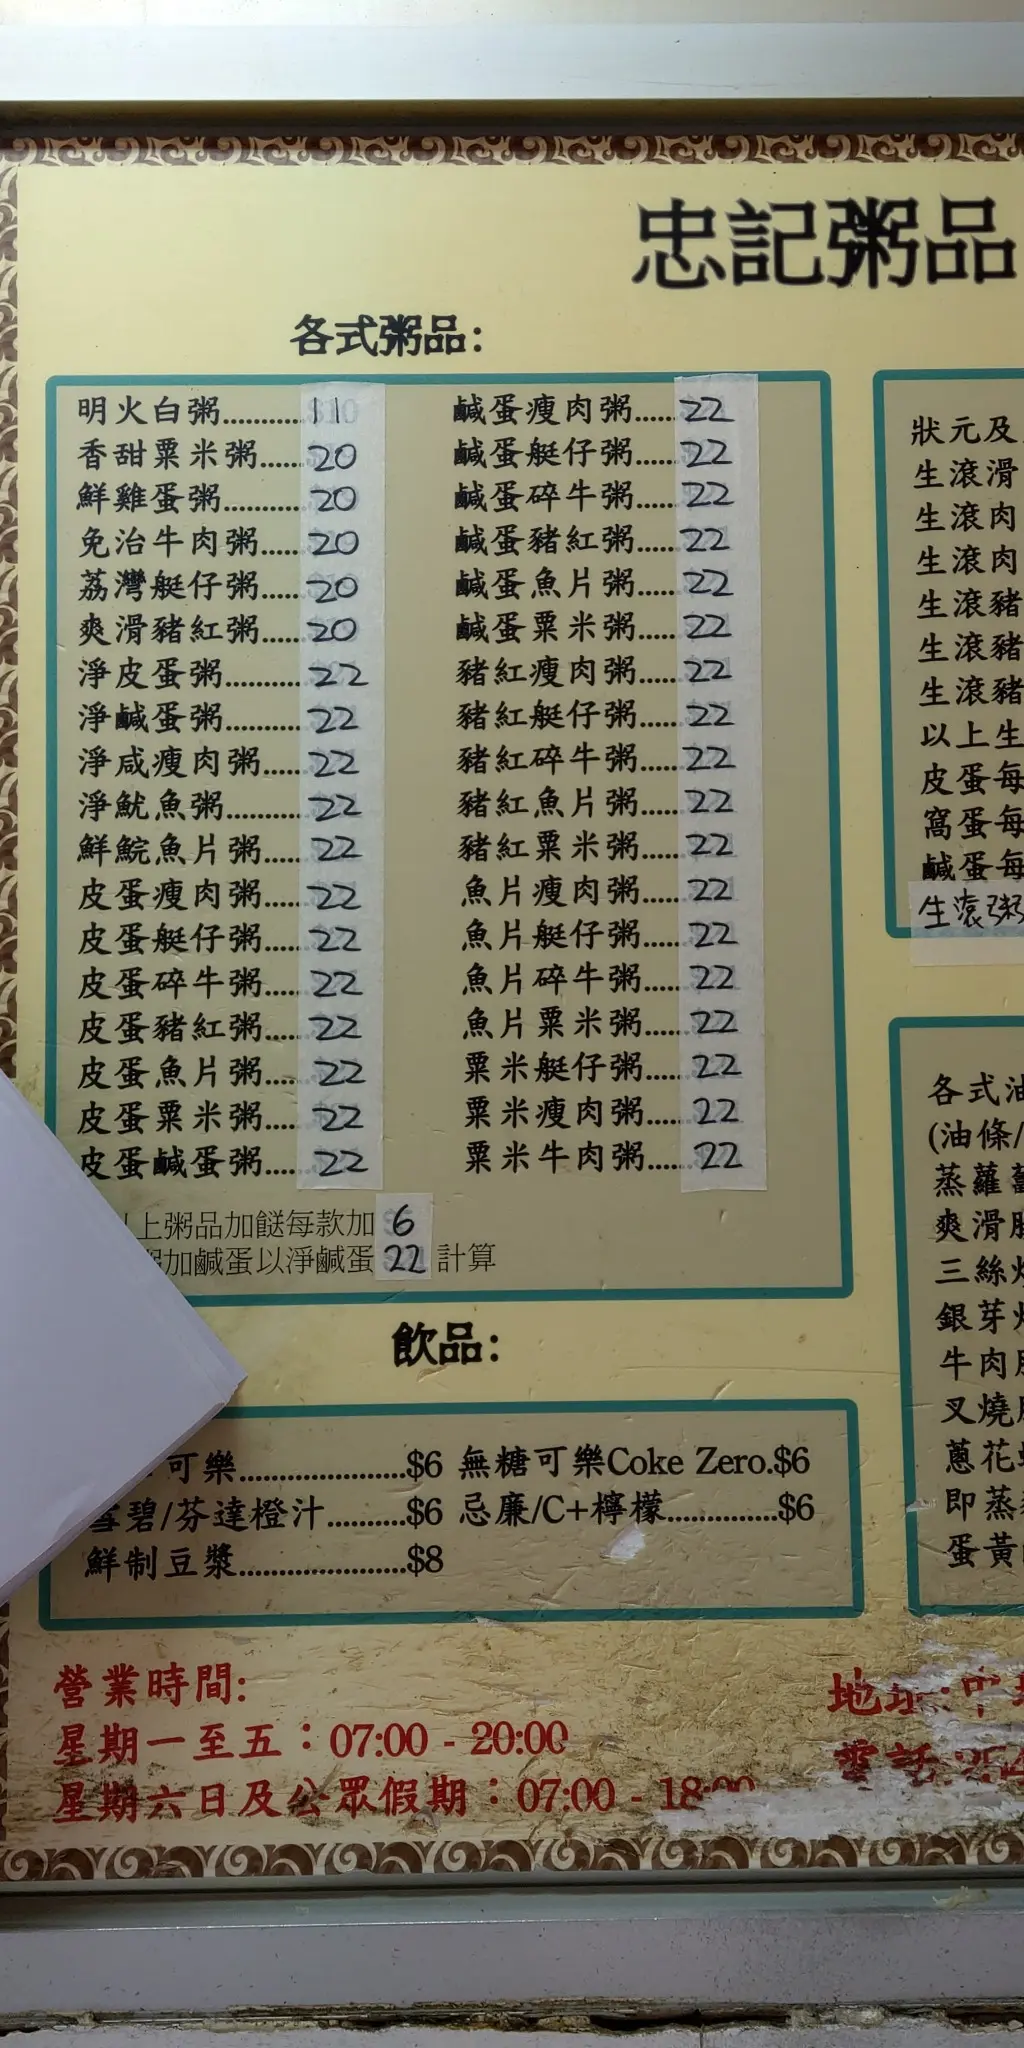 忠記粥品
各式粥品:
明火白粥..........11
香甜粟米粥......20
鮮雞蛋粥..........20
免治牛肉粥......20
荔灣艇仔粥......20
爽滑豬紅粥......20
淨皮蛋粥..........22
淨鹹蛋粥..........22
淨咸瘦肉粥......22
淨魷魚粥..........22
鮮鯇魚片粥......22
皮蛋瘦肉粥......22
皮蛋艇仔粥......22
皮蛋碎牛粥......22
皮蛋豬紅粥......22
皮蛋魚片粥......22
皮蛋粟米粥......22
皮蛋鹹蛋粥......22
鹹蛋瘦肉粥......22
鹹蛋艇仔粥......22
鹹蛋碎牛粥......22
鹹蛋豬紅粥......22
鹹蛋魚片粥......22
鹹蛋粟米粥......22
豬紅瘦肉粥......22
豬紅艇仔粥......22
豬紅碎牛粥......22
豬紅魚片粥......22
豬紅粟米粥......22
魚片瘦肉粥......22
魚片艇仔粥......22
魚片碎牛粥......22
魚片粟米粥......22
粟米艇仔粥......22
粟米瘦肉粥......22
粟米牛肉粥......22
上粥品加餸每款加 6
加鹹蛋以淨鹹蛋 22 計算
飲品:
可樂......................$6
無糖可樂Coke Zero.$6
雪碧/芬達橙汁..........$6
忌廉/C+檸檬..............$6
鮮制豆漿......................$8
狀元及
生滾滑
生滾肉
生滾肉
生滾豬
生滾豬
生滾豬
以上生
皮蛋每
窩蛋每
鹹蛋每
生滾粥
各式油
(油條/
蒸蘿
爽滑
三絲
銀芽
牛肉
叉燒
蔥花
即蒸
蛋黃
營業時間:
星期一至五：07:00 - 20:00
星期六日及公眾假期：07:00 - 18:00
地址:中
電話: